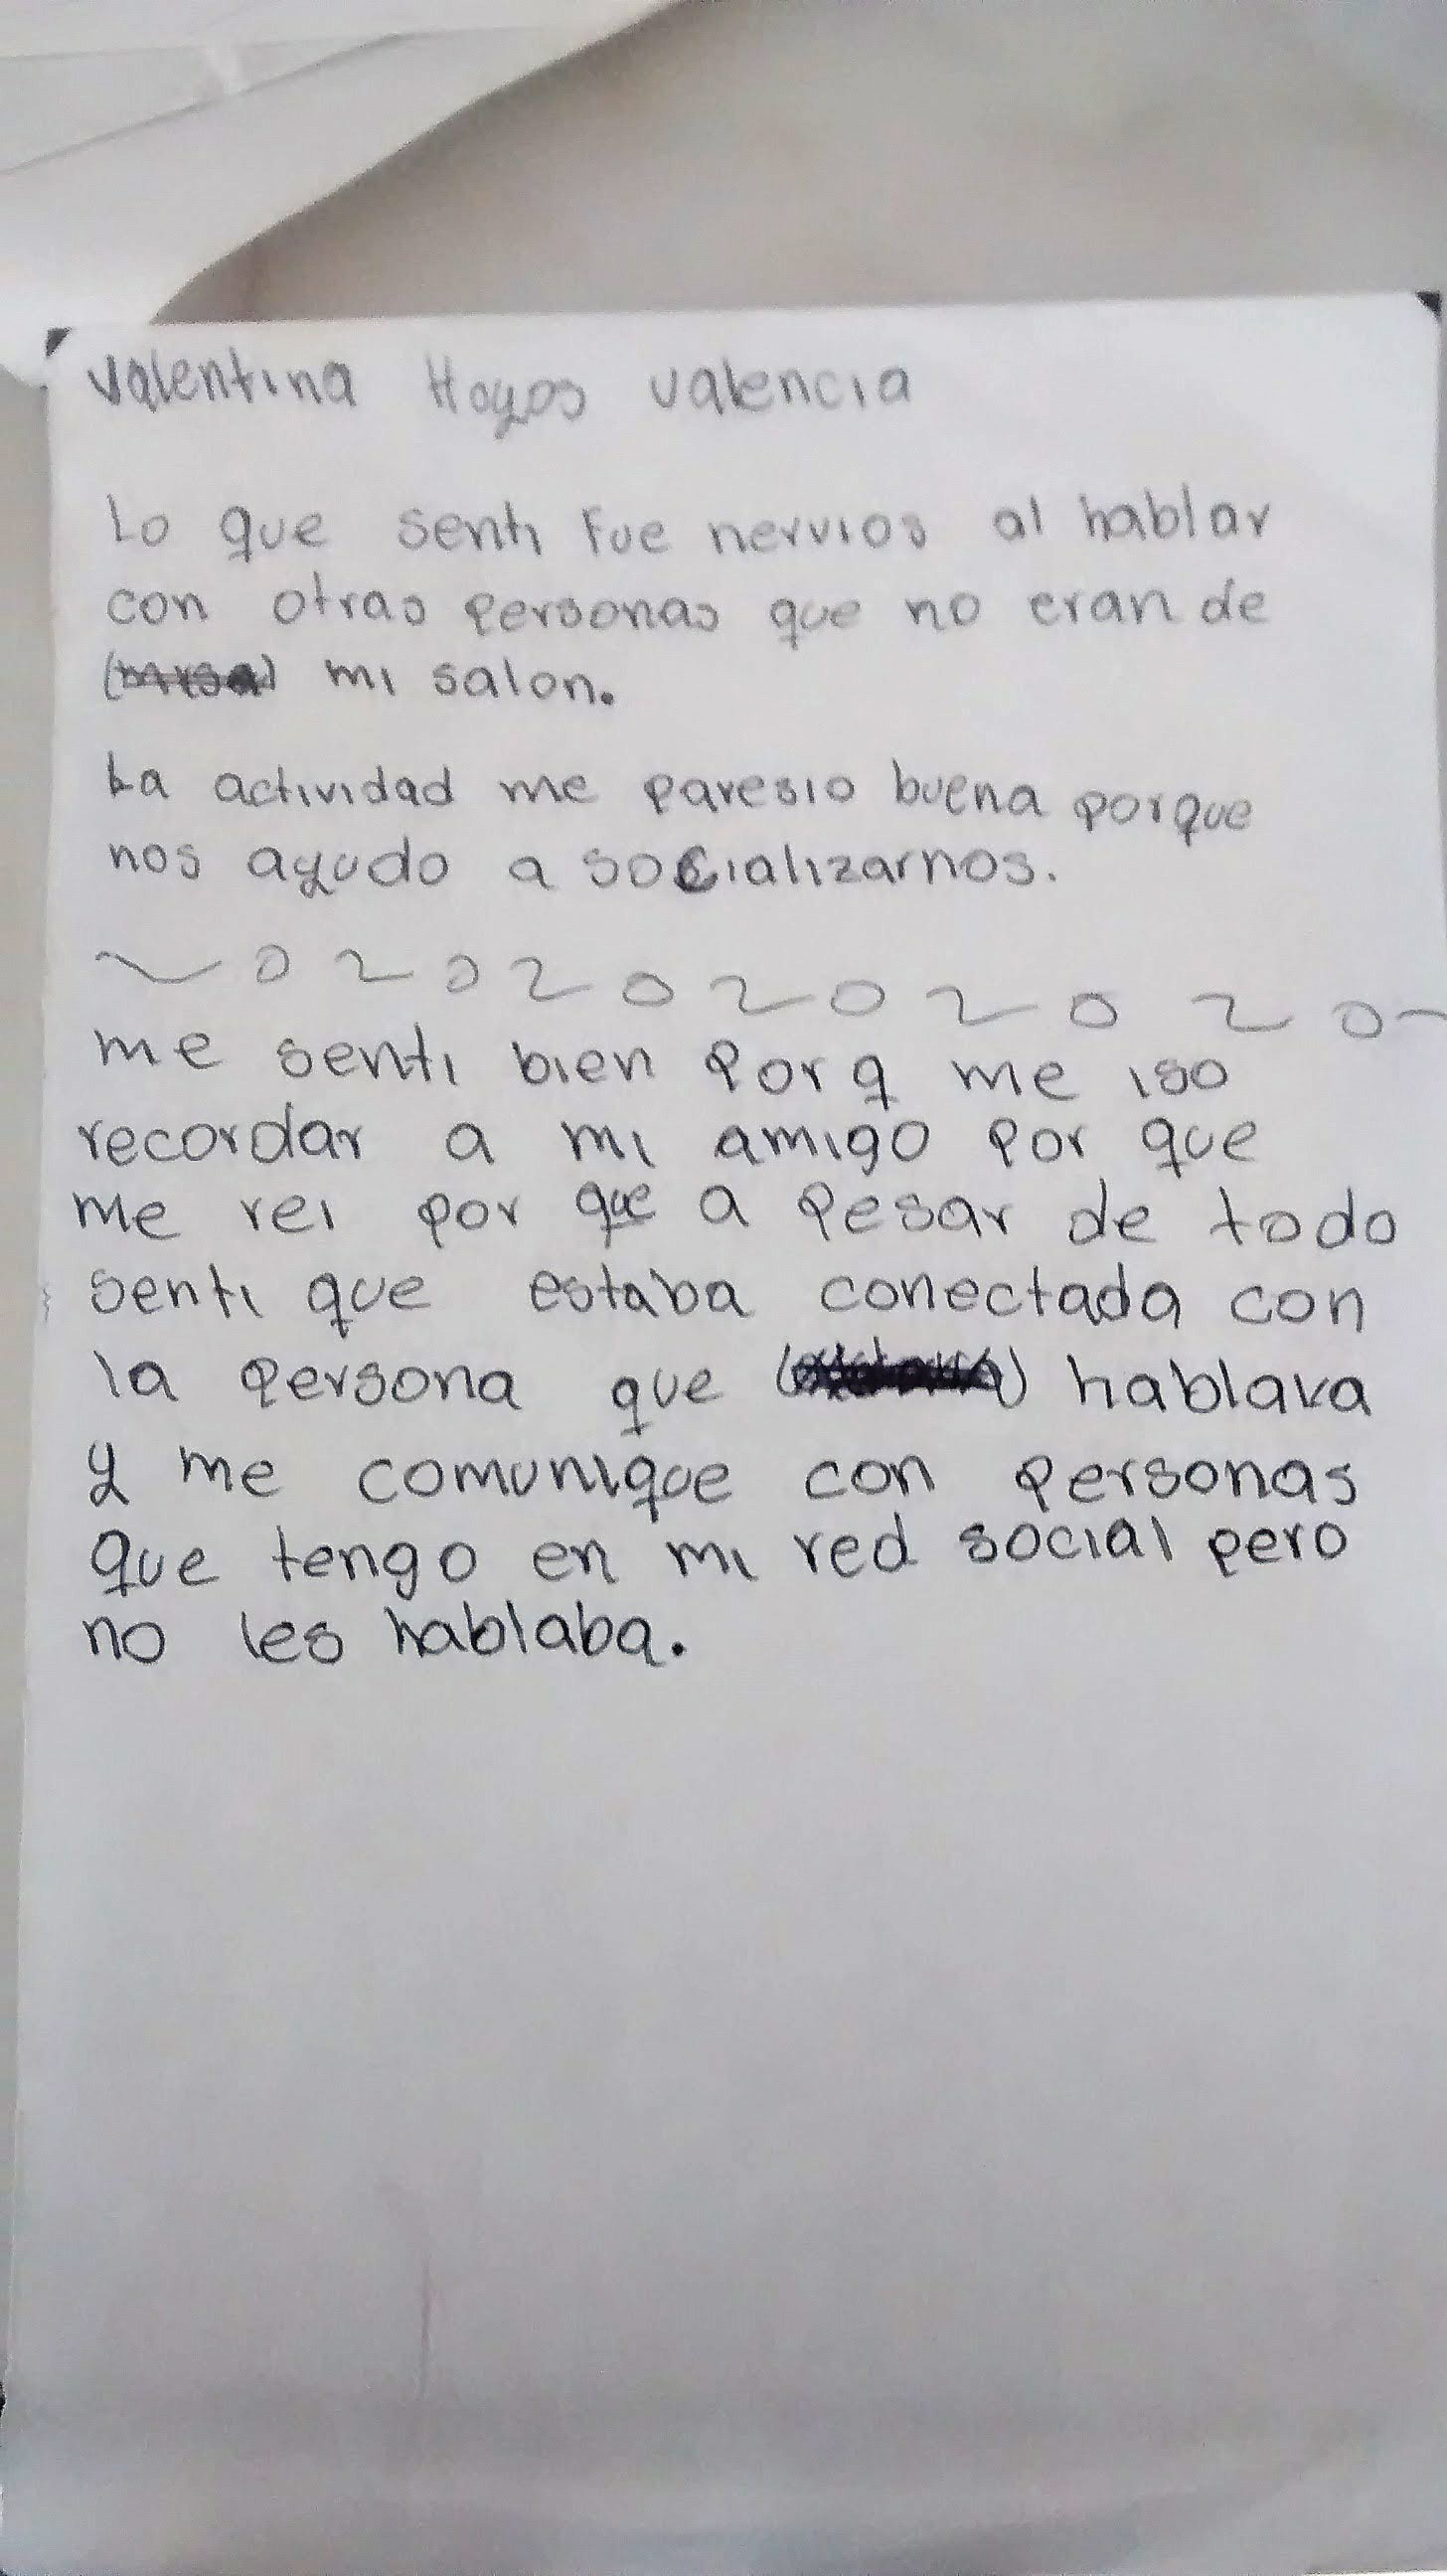 Valentina Hoyos valencia
Lo que senti fue nervios al hablar
con otras personas que no eran de
mi salon.
La actividad me paresio buena porque
nos ayudo a socializarnos.
me senti bien porq me iso
recordar a mi amigo por que
me rei por que a pesar de todo
senti que estaba conectada con
la persona que hablava
y me comunique con personas
que tengo en mi red social pero
no les hablaba.